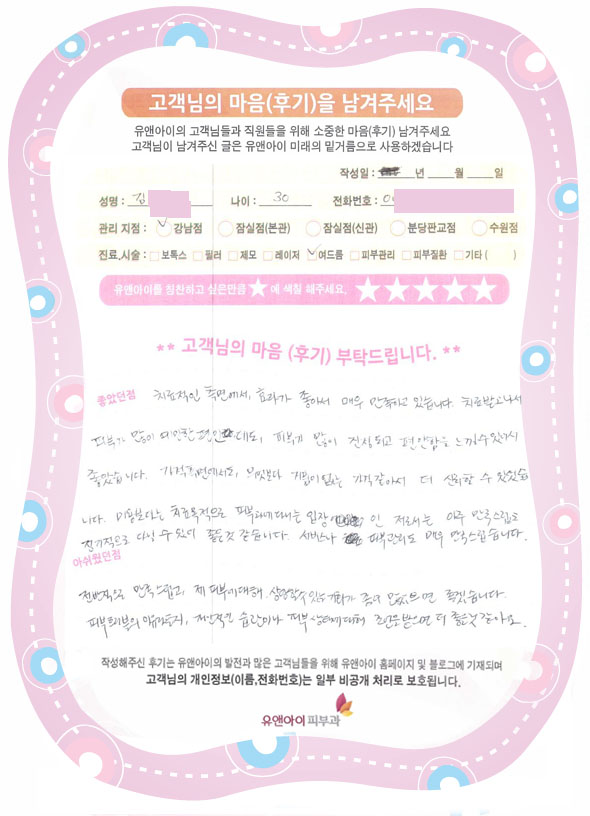 고객님의 마음(후기)을 남겨주세요
유앤아이의 고객님들과 직원들을 위해 소중한 마음(후기) 남겨주세요
고객님이 남겨주신 글은 유앤아이 미래의 밑거름으로 사용하겠습니다
작성일 : 년 월 일
성명 : 김 나이 : 30 전화번호 : 0
관리 지점 : 강남점 잠실점(본관) 잠실점(신관) 분당판교점 수원점
진료,시술 : 보톡스 필러 제모 레이저 여드름 피부관리 피부질환 기타 ( )
유앤아이를 칭찬하고 싶은만큼 ★ 에 색칠 해주세요. ★★★★★
** 고객님의 마음 (후기) 부탁드립니다. **
좋았던점 치료적인 측면에서, 효과가 좋아서 매우 만족하고 있습니다. 치료받고나서
피부가 많이 예민한 편인데도, 피부가 많이 진정되고 편안함을 느낄수있어서
좋았습니다. 가격측면에서도, 무엇보다 거품이없는 가격같아서 더 신뢰할 수 있었습
니다. 미용보다는 치료목적으로 피부과에 다니는 입장 인 저로서는 아주 만족스럽고
정기적으로 다닐 수 있어 좋은것 같습니다. 서비스나 피부관리도 매우 만족스럽습니다.
아쉬웠던점
전반적으로 만족스럽고, 제 피부에 대해 상담할수 있는 기회가 좀더 많았으면 좋겠습니다.
피부트러블의 이유라든지, 개인적인 습관이나 피부 상태에 대해 조언받으면 더 좋을것 같아요.
작성해주신 후기는 유앤아이의 발전과 많은 고객님들을 위해 유앤아이 홈페이지 및 블로그에 기재되며
고객님의 개인정보(이름,전화번호)는 일부 비공개 처리로 보호됩니다.
유앤아이피부과